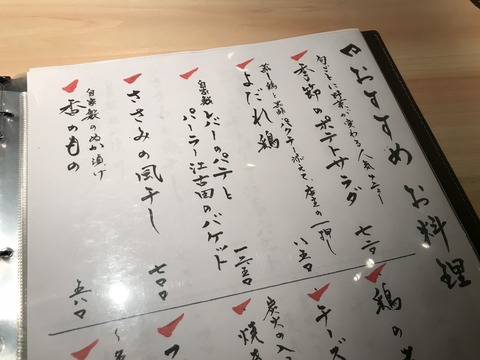 おすすめお料理
旬ごとに野菜が変わる人気メニュー
季節のポテトサラダ 七二〇
蒸し鶏と薬味 パクチー添えで、店主の一押し
よだれ鶏 八五〇
自家製レバーのパテと
パーラー江古田のバケット 一二五〇
ささみの風干し 七〇〇
自家製のぬか漬け
香のもの 五八〇
鶏の
チーズ
炭火の入っ
焼き